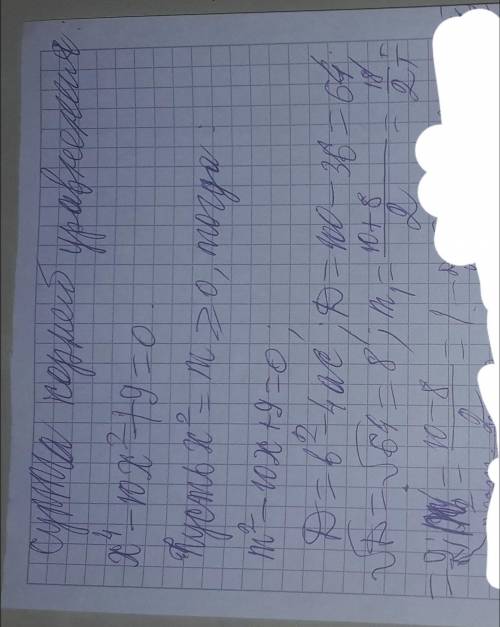 Сумма корней уравнения
x⁴ - 10x² + 9 = 0.
Пусть x² = m ≥ 0, тогда:
m² - 10x + 9 = 0;
D = b² - 4ac; D = 100 - 36 = 64;
√D = √64 = 8; m₁ = (10 + 8)/2 = 18/2 =
= 9; = (10 - 8)/2 = 1